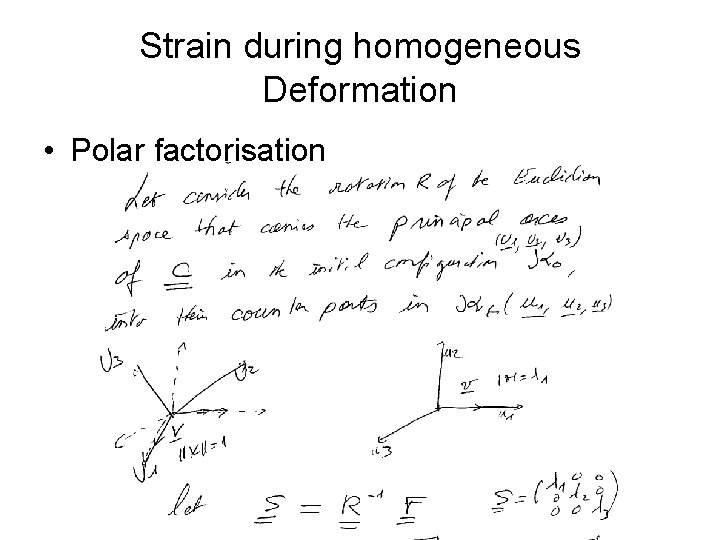 Strain during homogeneous
Deformation
• Polar factorisation
Let consider the rotation R of the Euclidian
space that carries the principal axes
(U1, U2, U3)
of C in the initial configuration K0,
into their counter parts in Kt (u1, u2, u3)
U3
U2
u2
v |v|=λ1
u1
V
U1
||V||=1
u3
let S = R⁻¹ F
S = (λ1 0 0
0 λ2 0
0 0 λ3)